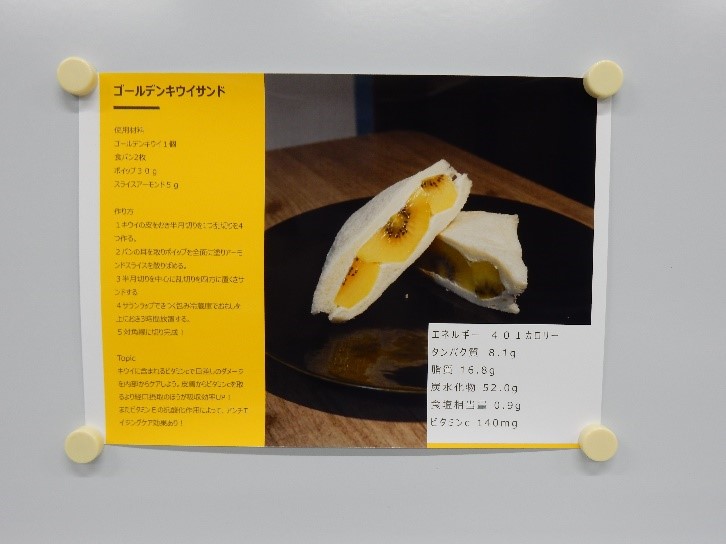 ゴールデンキウイサンド
使用材料
ゴールデンキウイ1個
食パン2枚
ホイップ30g
スライスアーモンド5g
作り方
1キウイの皮をむき半月切りを1つ乱切りを4
つ作る。
2パンの耳を取りホイップを全面に塗りアーモ
ンドスライスを散りばめる。
3半月切りを中心に乱切りを四方に置くさサ
ンドする
4サランラップできつく包み冷蔵庫でおもしを
上におき3時間放置する。
5対角線に切り完成!
Topic
キウイに含まれるビタミンcで日差しのダメージ
を内部からケアしよう。皮膚からビタミンcを取
るより経口摂取のほうが吸収効率UP!
またビタミンEの抗酸化作用によって、アンチエ
イジングケア効果あり!
エネルギー 401カロリー
タンパク質 8.1g
脂質 16.8g
炭水化物 52.0g
食塩相当量 0.9g
ビタミンc 140mg